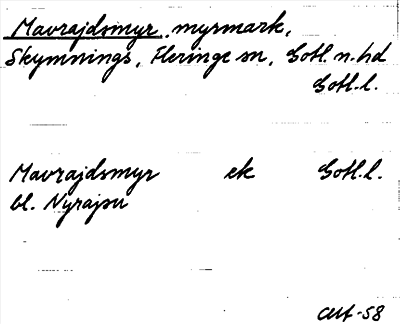 Mavrajdsmyr, myrmark,
Skymnings, Heringe sn, Gotl. n. hd
Gotl. l.
Mavrajdsmyr ek Gotl. l.
bl. Nyrajsu
-58